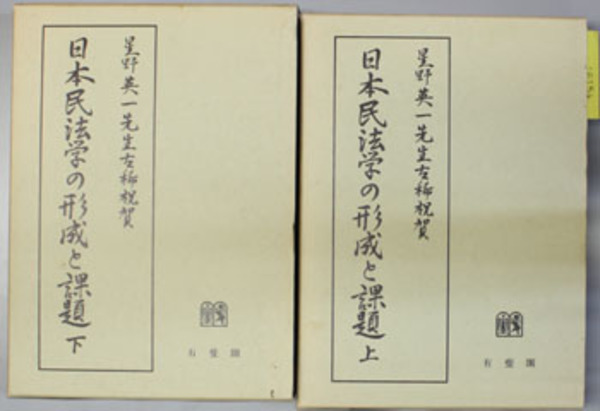 星野英一先生古稀祝賀
日本民法学の形成と課題 下
有斐閣
星野英一先生古稀祝賀
日本民法学の形成と課題 上
有斐閣